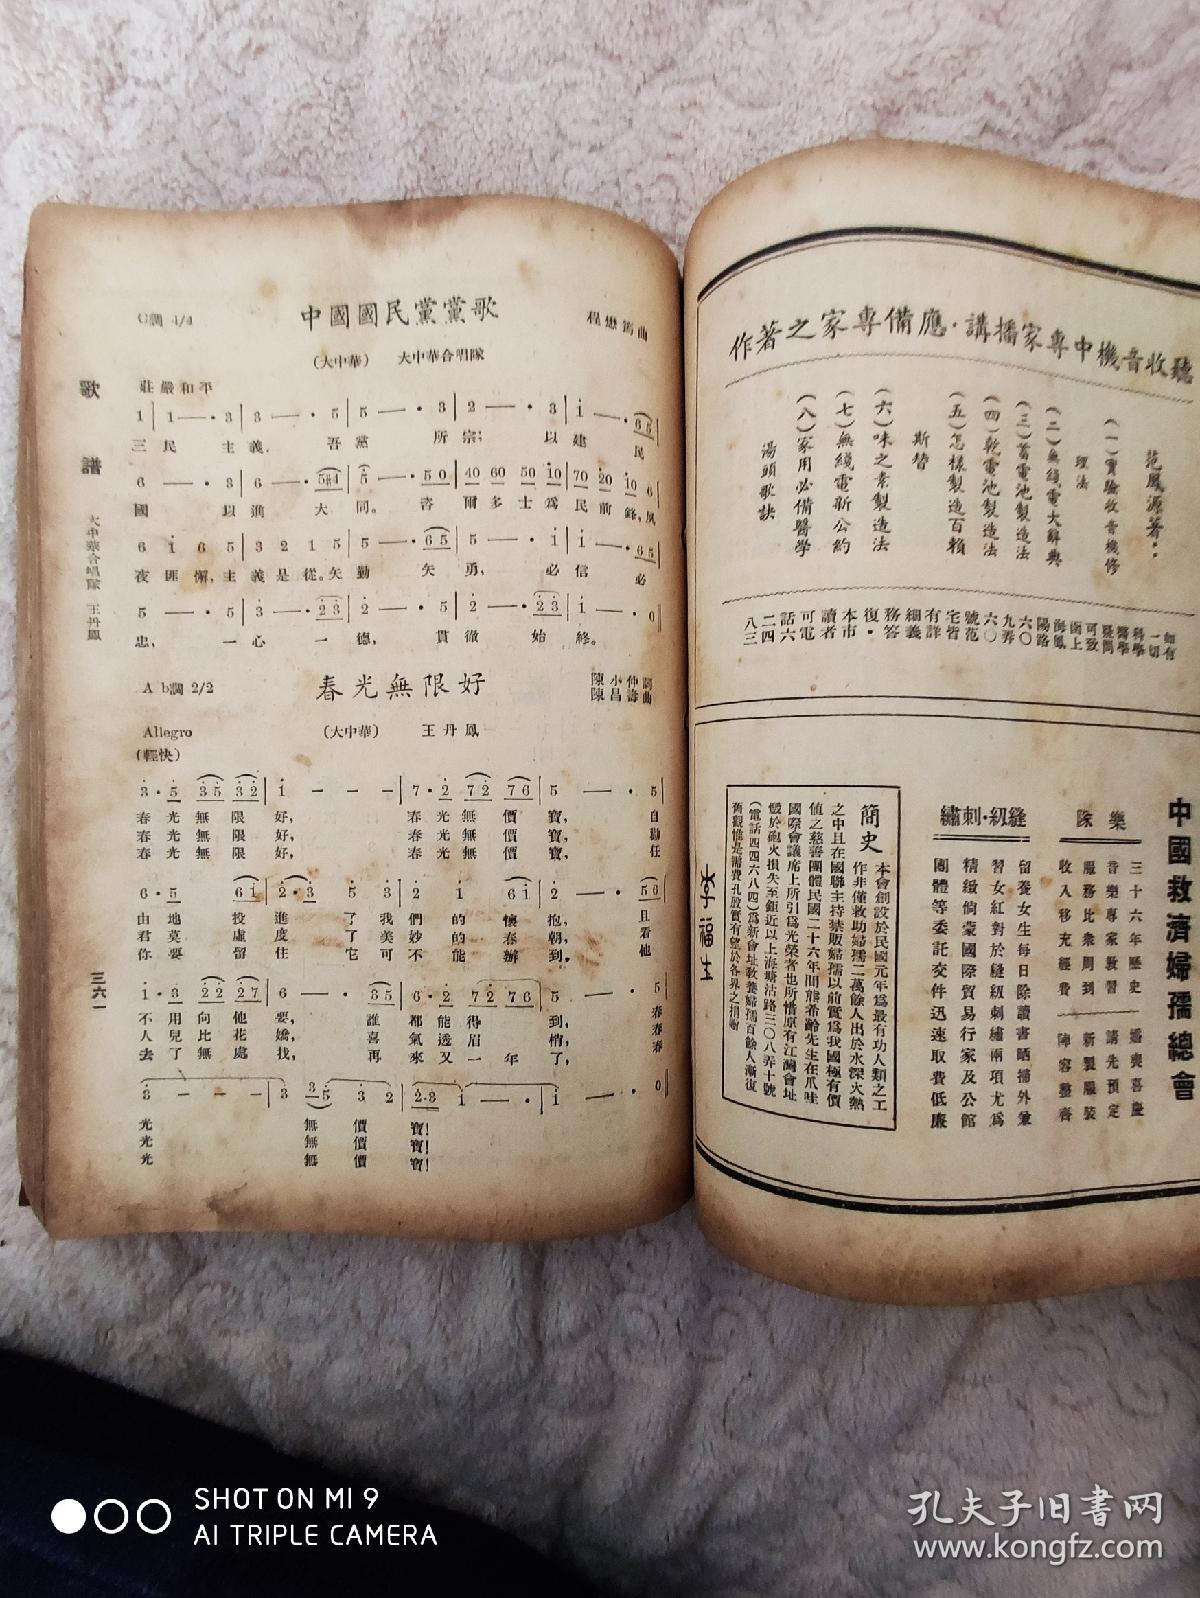 C調 4/4
中國國民黨黨歌
程懋筠曲
(大中華) 大中華合唱隊
歌譜
大中華合唱隊 王丹鳳
三六一
莊嚴和平
三民主義, 吾黨所宗; 以建民
國 以進大同。咨爾多士為民前鋒, 夙
夜匪懈, 主義是從。矢勤矢勇, 必信必
忠, 一心一德, 貫徹始終。
A b調 2/2
春光無限好
陳小仲詞
陳昌壽曲
Allegro
(輕快)
(大中華) 王丹鳳
春光無限好, 春光無價寶, 自
春光無限好, 春光無價寶, 勸
春光無限好, 春光無價寶, 任
由地投進了我們的懷抱, 且
君莫虛度了美妙的春朝, 看
你要留住它可不能辦到, 他
不用向他要, 誰都能得到, 春
人兒比花嬌, 喜氣透眉梢, 春
去了無處找, 再來又一年了, 春
光 無價寶!
光 無價寶!
光 無價寶!
聽收音機中專家播講·應備專家之著作
范鳳源著:
(一)實驗收音機修
理法
(二)無綫電大辭典
(三)蓄電池製造法
(四)乾電池製造法
(五)怎樣製造百賴
斯替
(六)味之素製造法
(七)無綫電新公約
(八)家用必備醫學
湯頭歌訣
如有
一切
科學
醫學
疑問
可致
函上
海鳳
陽路
六〇
九弄
六〇
號范
宅皆
有詳
細義
務答
復·
本市
讀者
可電
話六
二四
八三
中國救濟婦孺總會
樂隊
三十六年歷史
音樂專家教習
服務比衆周到
收入移充經費
婚喪喜慶
請先預定
新製服裝
陣容整齊
縫紉·刺繡
留養女生每日除讀書晒掃外兼
習女紅對於縫紉刺繡兩項尤爲
精緻倘蒙國際貿易行家及公館
團體等委託交件迅速取費低廉
簡史
本會創設於民國元年爲最有功人類之工
作非僅救助婦孺二萬餘人出於水深火熱
之中且在國聯主持禁販婦孺以前實爲我國極有價
値之慈善團體民國二十六年間熊希齡先生在爪哇
國際會議席上所引爲光榮者也所惜原有江灣會址
毀於砲火損失至鉅近以上海塘沽路三〇八弄十號
(電話四四六八四)爲新會址教養婦孺百餘人漸復
舊觀惟是需費孔殷實有望於各界之捐助
李福生
SHOT ON MI 9
AI TRIPLE CAMERA
孔夫子旧书网
www.kongfz.com